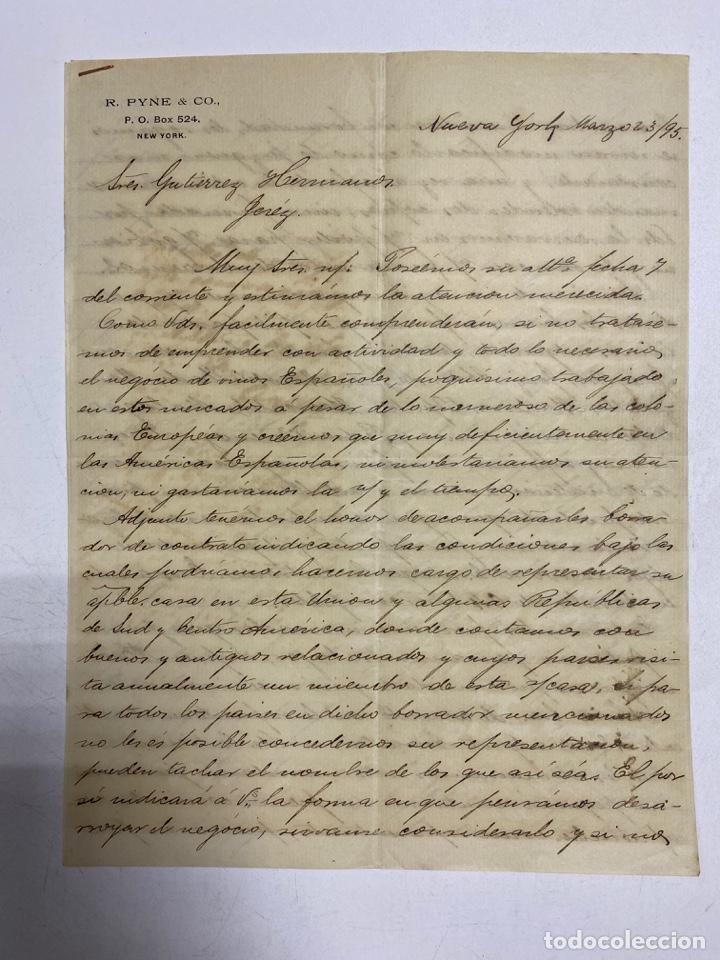 R. PYNE & CO.,
P. O. Box 524,
NEW YORK.
Nueva York Marzo 23/95.
Sres. Gutierrez Hermanos
Jeréz.
Muy Sres. n/: Poseémos su att.ª fecha 7
del corriente y estimámos la atencion merecida.
Como Vds. facilmente comprenderán, si no tratase-
mos de emprender con actividad y todo lo necesario,
el negócio de vinos Españoles, poquisimo trabajado,
en estos mercados á pesar de lo numeroso de las colo-
nias Européas y creémos que muy deficientemente en
las Américas Españolas, ni molestariamos su aten-
cion, ni gastariamos la n/ y el tiempo.
Adjunto tenémos el honor de acompañarles borra-
dor de contrato indicándo las condiciones bajo las
cuales podriamos hacernos cargo de representar su
casa en esta Union y algunas Repúblicas
de Sud y Centro América, donde contamos con
buenos y antiguos relacionados y cuyos paises visi-
ta anualmente un miembro de esta s/casa. Si pa-
ra todos los paises en dicho borrador mencionados
no les és posible concedernos su representacion,
pueden tachar el nombre de los que asi séa. El por
sí indicará á Vs. la forma en que pensámos desa-
rroyar el negócio, sirvanse considerarlo y si no
todocoleccion.net